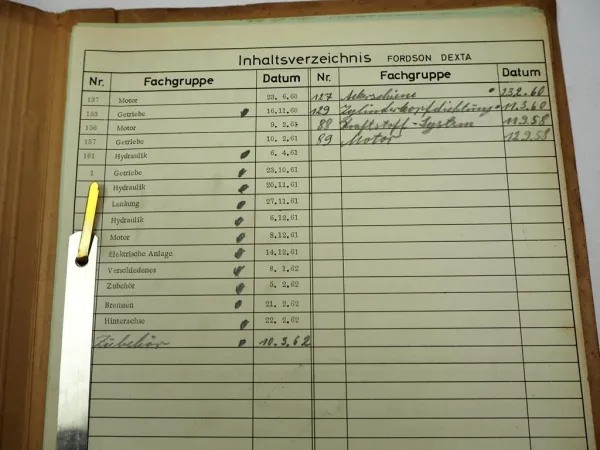 Inhaltsverzeichnis FORDSON DEXTA
Nr. Fachgruppe Datum Nr. Fachgruppe Datum
137 Motor 23. 6.60 127 Ackerschiene 23.2.60
153 Getriebe 16.11.60 129 Zylinderkopfdichtung 11.3.60
156 Motor 9. 2.61 88 Kraftstoff-System 11.9.58
157 Getriebe 10. 2.61 89 Motor 12.9.58
161 Hydraulik 6. 4.61
1 Getriebe 23.10.61
Hydraulik 20.11.61
Lenkung 27.11.61
Hydraulik 6.12.61
Motor 8.12.61
Elektrische Anlage 14.12.61
Verschiedenes 8. 1.62
Zubehör 5. 2.62
Bremsen 21. 2.62
Hinterachse 22. 2.62
Zubehör 10.3.62